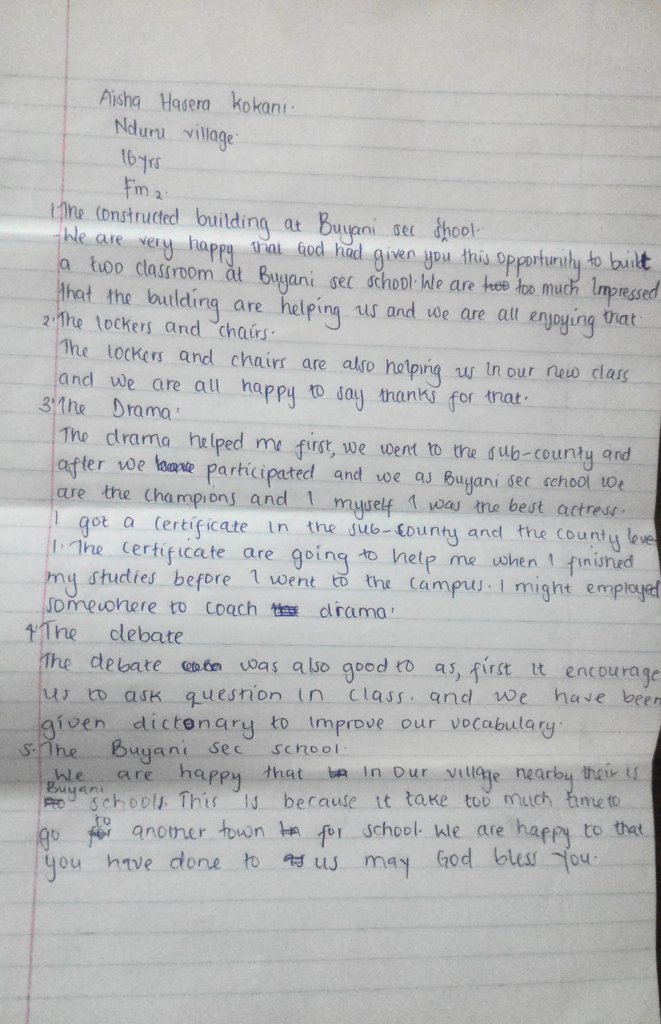 Aisha Hasera Kokani.
Nduru village.
16yrs
Fm 2.
1. The constructed building at Buyani sec school.
- We are very happy that God had given you this opportunity to built
a two classroom at Buyani sec school. We are too much Impressed
that the building are helping us and we are all enjoying that.
2. The lockers and chairs.
The lockers and chairs are also helping us in our new class
and we are all happy to say thanks for that.
3. The Drama.
The drama helped me first, we went to the sub-county and
after we participated and we as Buyani sec school we
are the champions and I myself I was the best actress.
I got a certificate in the sub-county and the county leve
l. The certificate are going to help me when I finished
my studies before I went to the campus. I might employed
somewhere to coach drama.
4. The debate
The debate was also good to as, first it encourage
us to ask question in class. and we have been
given dictonary to improve our vocabulary.
5. The Buyani sec school.
We are happy that in our village nearby their is
Buyani schools. This is because it take too much time to
go to another town for school. We are happy to that
you have done to us may God bless you.